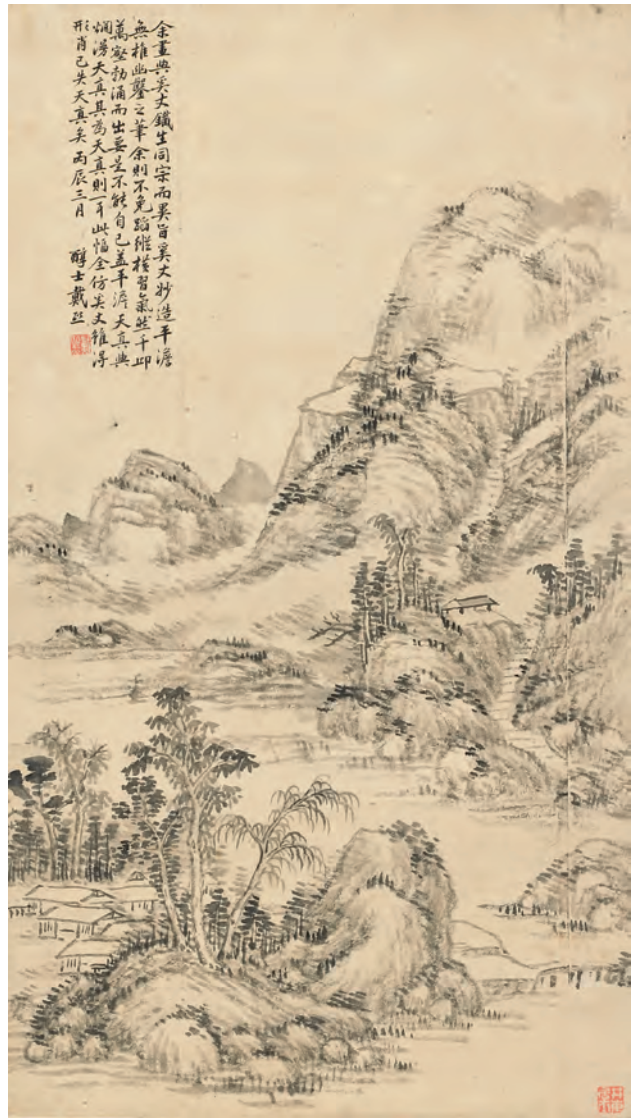 余畫與奚丈鐵生同宗而異旨奚丈妙造平澹
無椎幽鑿之筆余則不免蹈縱橫習氣然千岬
萬壑勃涌而出要是不能自已蓋平澹天真與
爛漫天真其為天真則一耳此幅全仿奚丈雖得
形肖已失天真矣丙辰三月
醇士戴熙